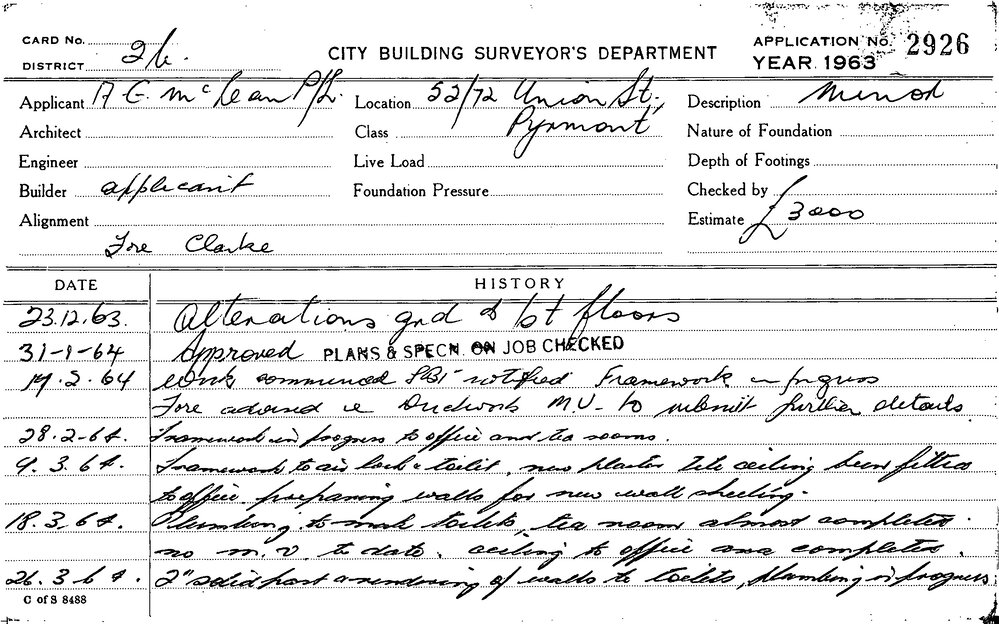 CARD No.
DISTRICT 26.
CITY BUILDING SURVEYOR'S DEPARTMENT
APPLICATION No. 2926
YEAR 1963
Applicant A. E. McLean P/L. Location 52/72 Union St., Description Minor
Architect Class Pyrmont Nature of Foundation
Engineer Live Load Depth of Footings
Builder applicant Foundation Pressure Checked by
Alignment Estimate £3000
Fore Clarke
DATE HISTORY
23.12.63. Alterations grd & 1st floors
31-1-64 Approved PLANS & SPECN. ON JOB CHECKED
19.2.64 Work commenced notified Framework in progress
Fore advised re Ductwork M.V. to submit further details
28.2-64. Framework in progress to office and tea rooms.
9.3.64. Framework to air lock & toilet, new plaster tile ceiling been fitted
to office. preparing walls for new wall sheeting.
18.3.64. Plumbing to male toilets, tea room almost completed.
no M.V to date. ceiling to office area completed.
26.3.64. 2" solid rendering of walls to toilets, plumbing in progress
C of S 8488